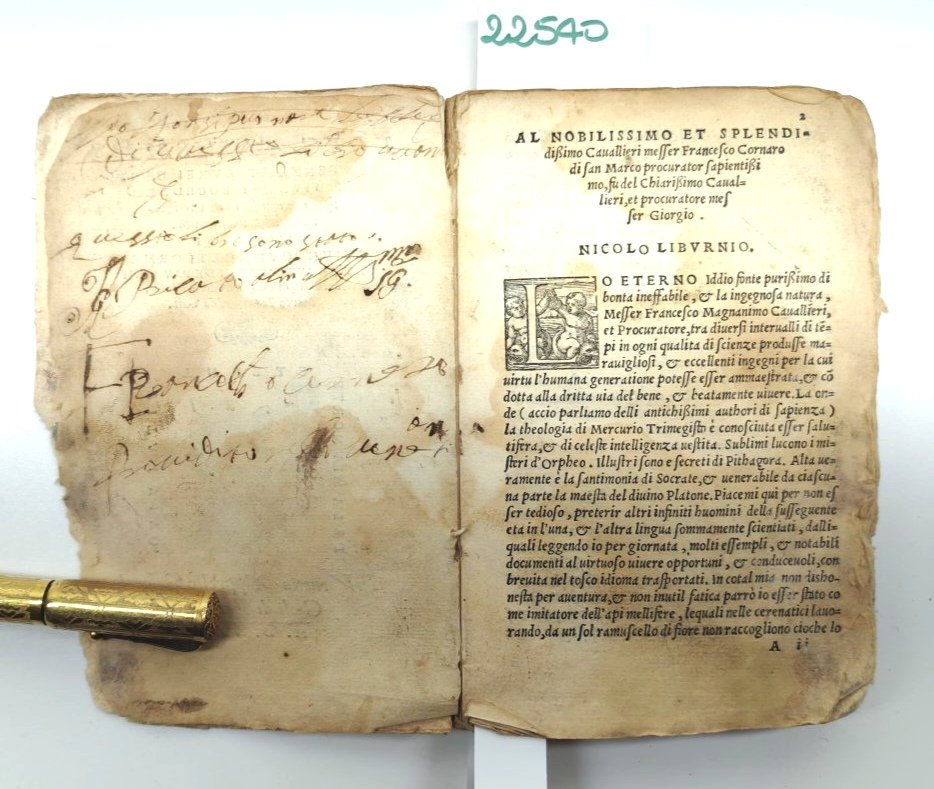 22540
2
AL NOBILISSIMO ET SPLENDI-
dißimo Cauallieri messer Francesco Cornaro
di san Marco procurator sapientißi
mo, fu del Chiarißimo Caual-
lieri, et procuratore mes
ser Giorgio.
NICOLO LIBVRNIO.
LO ETERNO Iddio fonte purißimo di
bonta ineffabile, & la ingegnosa natura,
Messer Francesco Magnanimo Cauallieri,
et Procuratore, tra diuersi interualli di tē-
pi in ogni qualita di scienze produsse ma-
rauigliosi, & eccellenti ingegni per la cui
virtu l'humana generatione potesse esser ammaestrata, & cō
dotta alla dritta uia del bene, & beatamente uiuere. La on-
de (accio parliamo delli antichißimi authori di sapienza)
la theologia di Mercurio Trimegisto è conosciuta esser salu-
tifera, & di celeste intelligenza uestita. Sublimi lucono i mi-
steri d'Orpheo. Illustri sono e secreti di Pithagora. Alta ue-
ramente è la santimonia di Socrate, & uenerabile da ciascu-
na parte la maesta del diuino Platone. Piacemi qui per non es
ser tedioso, preterir altri infiniti huomini della susseguente
eta in l'una, & l'altra lingua sommamente scientiati, dalli-
quali leggendo io per giornata, molti essempli, & notabili
documenti al virtuoso uiuere opportuni, & conduceuoli, con
breuita nel tosco idioma trasportati. In cotal mia non disho-
nesta per auentura, & non inutil fatica parrò io esser stato co
me imitatore dell'api mellifere, lequali nelle cerenatici lauo-
rando, da un sol ramuscello di fiore non raccogliono cioche lo
A ii